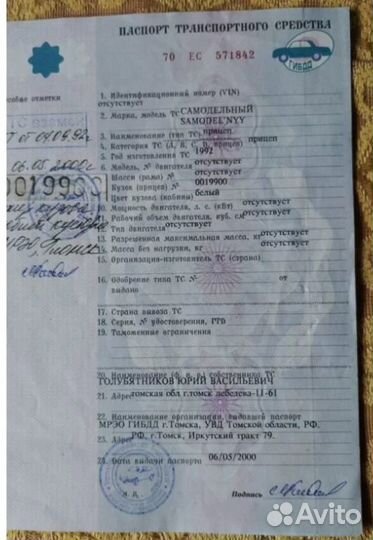 ПАСПОРТ ТРАНСПОРТНОГО СРЕДСТВА
70 ЕС 571842
ГИБДД
особые отметки
1. Идентификационный номер (VIN)
отсутствует
2. Марка, модель ТС САМОДЕЛЬНЫЙ
SAMODEL'NYY
3. Наименование (тип ТС) прицеп
4. Категория ТС (А, В, С, D, прицеп) прицеп
5. Год изготовления ТС 1992
6. Модель, № двигателя отсутствует
7. Шасси (рама) № отсутствует
8. Кузов (прицеп) № 0019900
9. Цвет кузова (кабины) белый
10. Мощность двигателя, л. с. (кВт) отсутствует
11. Рабочий объем двигателя, куб. см отсутствует
12. Тип двигателя отсутствует
13. Разрешенная максимальная масса, кг отсутствует
14. Масса без нагрузки, кг отсутствует
15. Организация-изготовитель ТС (страна)
16. Одобрение типа ТС № от
выдано
17. Страна вывоза ТС
18. Серия, № удостоверения, РТВ
19. Таможенные ограничения
20. Наименование (ф. и. о.) собственника ТС
ГОЛУБЯТНИКОВ ЮРИЙ ВАСИЛЬЕВИЧ
21. Адрес томская обл г.томск лебедева-11-61
22. Наименование организации, выдавшей паспорт
МРЭО ГИБДД г.Томска, УВД Томской области, РФ.
23. Адрес РФ, г.Томск, Иркутский тракт 79.
24. Дата выдачи паспорта 06/05/2000
М. П.
Подпись
06.05.2000г
0019900
Avito